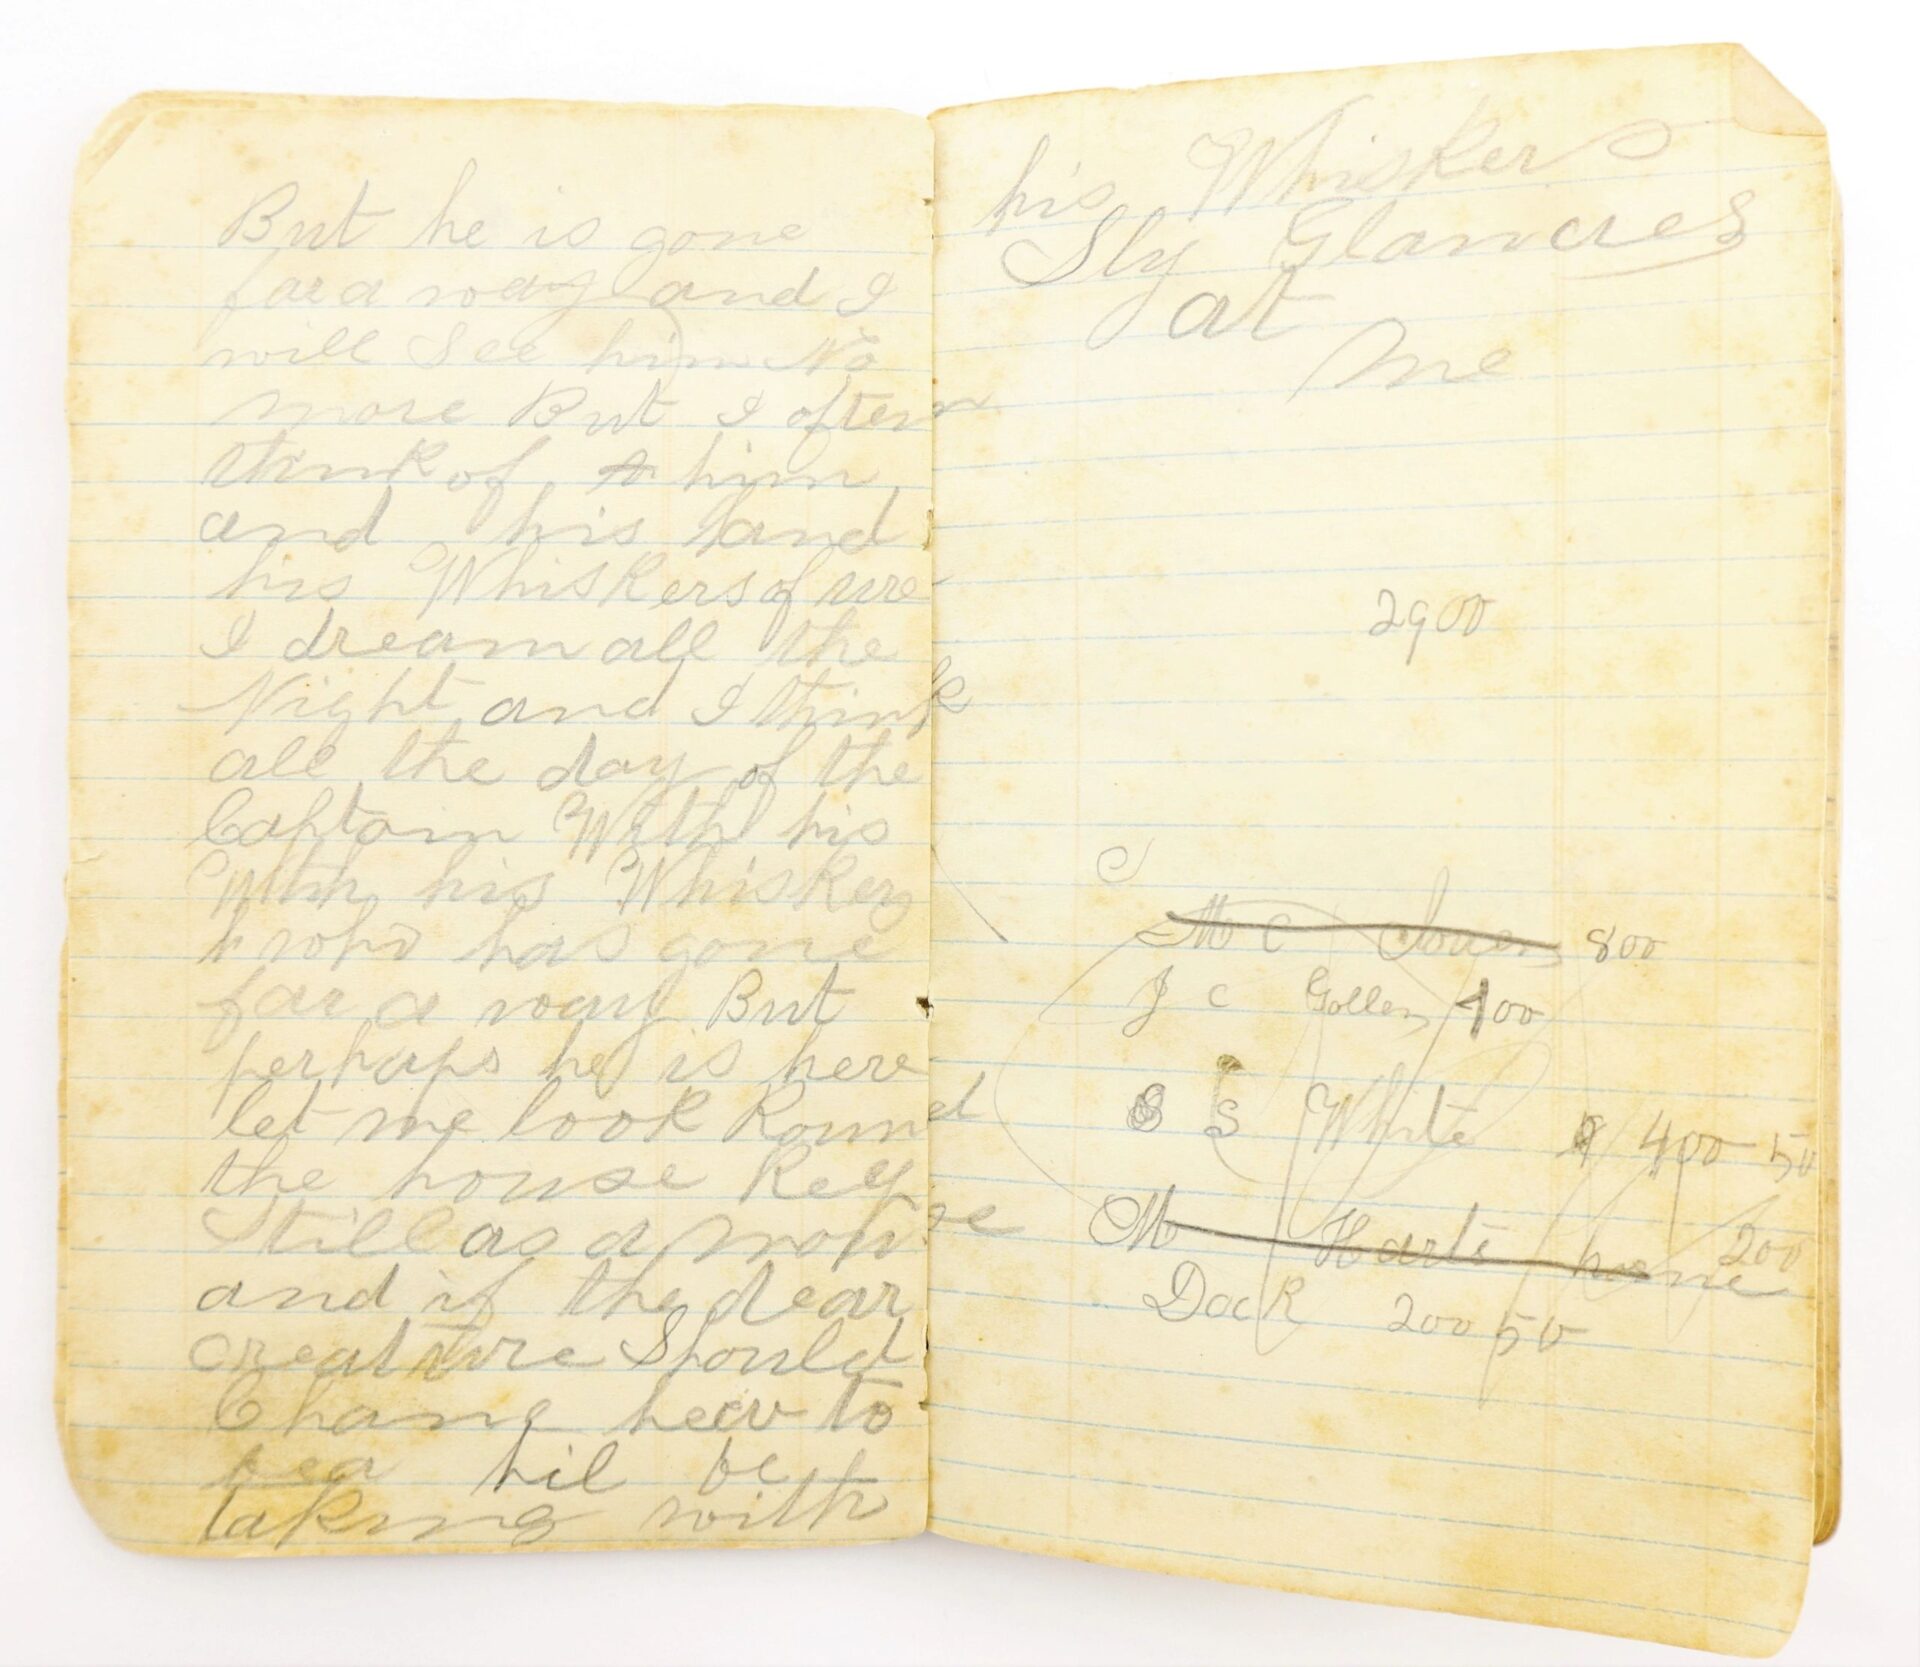 But he is gone
far a way and I
will See him No
more But I often
think of him
and his hand
his Whiskers of ure
I dream all the
Night and I think
all the day of the
Captain With his
With his Whiskers
who has gone
far a way But
perhaps he is here
let me look Round
the house Key
Still as a mouse
and if the dear
creature Should
Chance hear to
bea hil be
taking with
his Whiskers
Sly Glances
at
me
2900
M C 800
J C Gollen 400
S White 400 50
M Harts horne 200
Dock 200 50